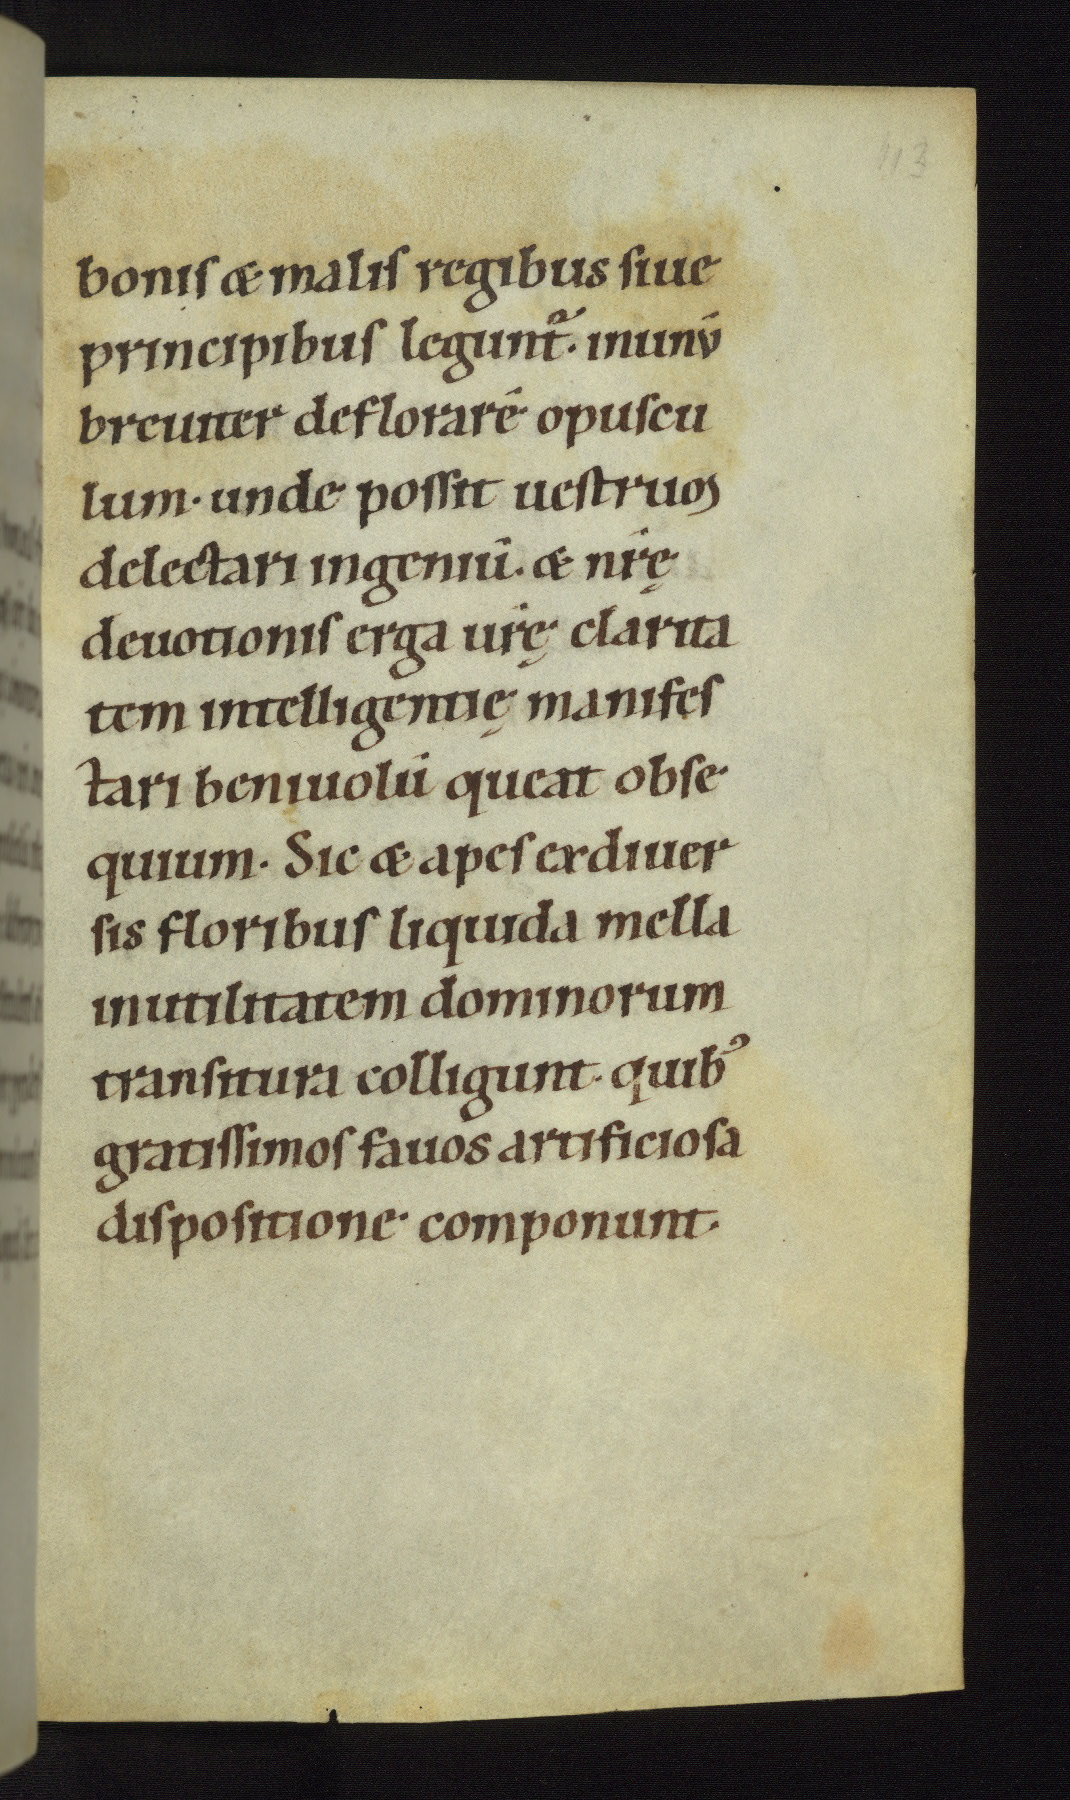 113
bonis & malis regibus siue
principibus legunt᷑. inunū
breuiter deflorarē opuscu
lum. unde possit uestrum
delectari ingeniū. & nr̄ę
deuotionis erga ur̄ę clarita
tem intelligentię manifes
tari beniuolū queat obse
quium. Sic & apes exdiuer
sis floribus liquida mella
inutilitatem dominorum
transitura colligunt. quibꝰ
gratissimos fauos artificiosa
dispositione componunt.